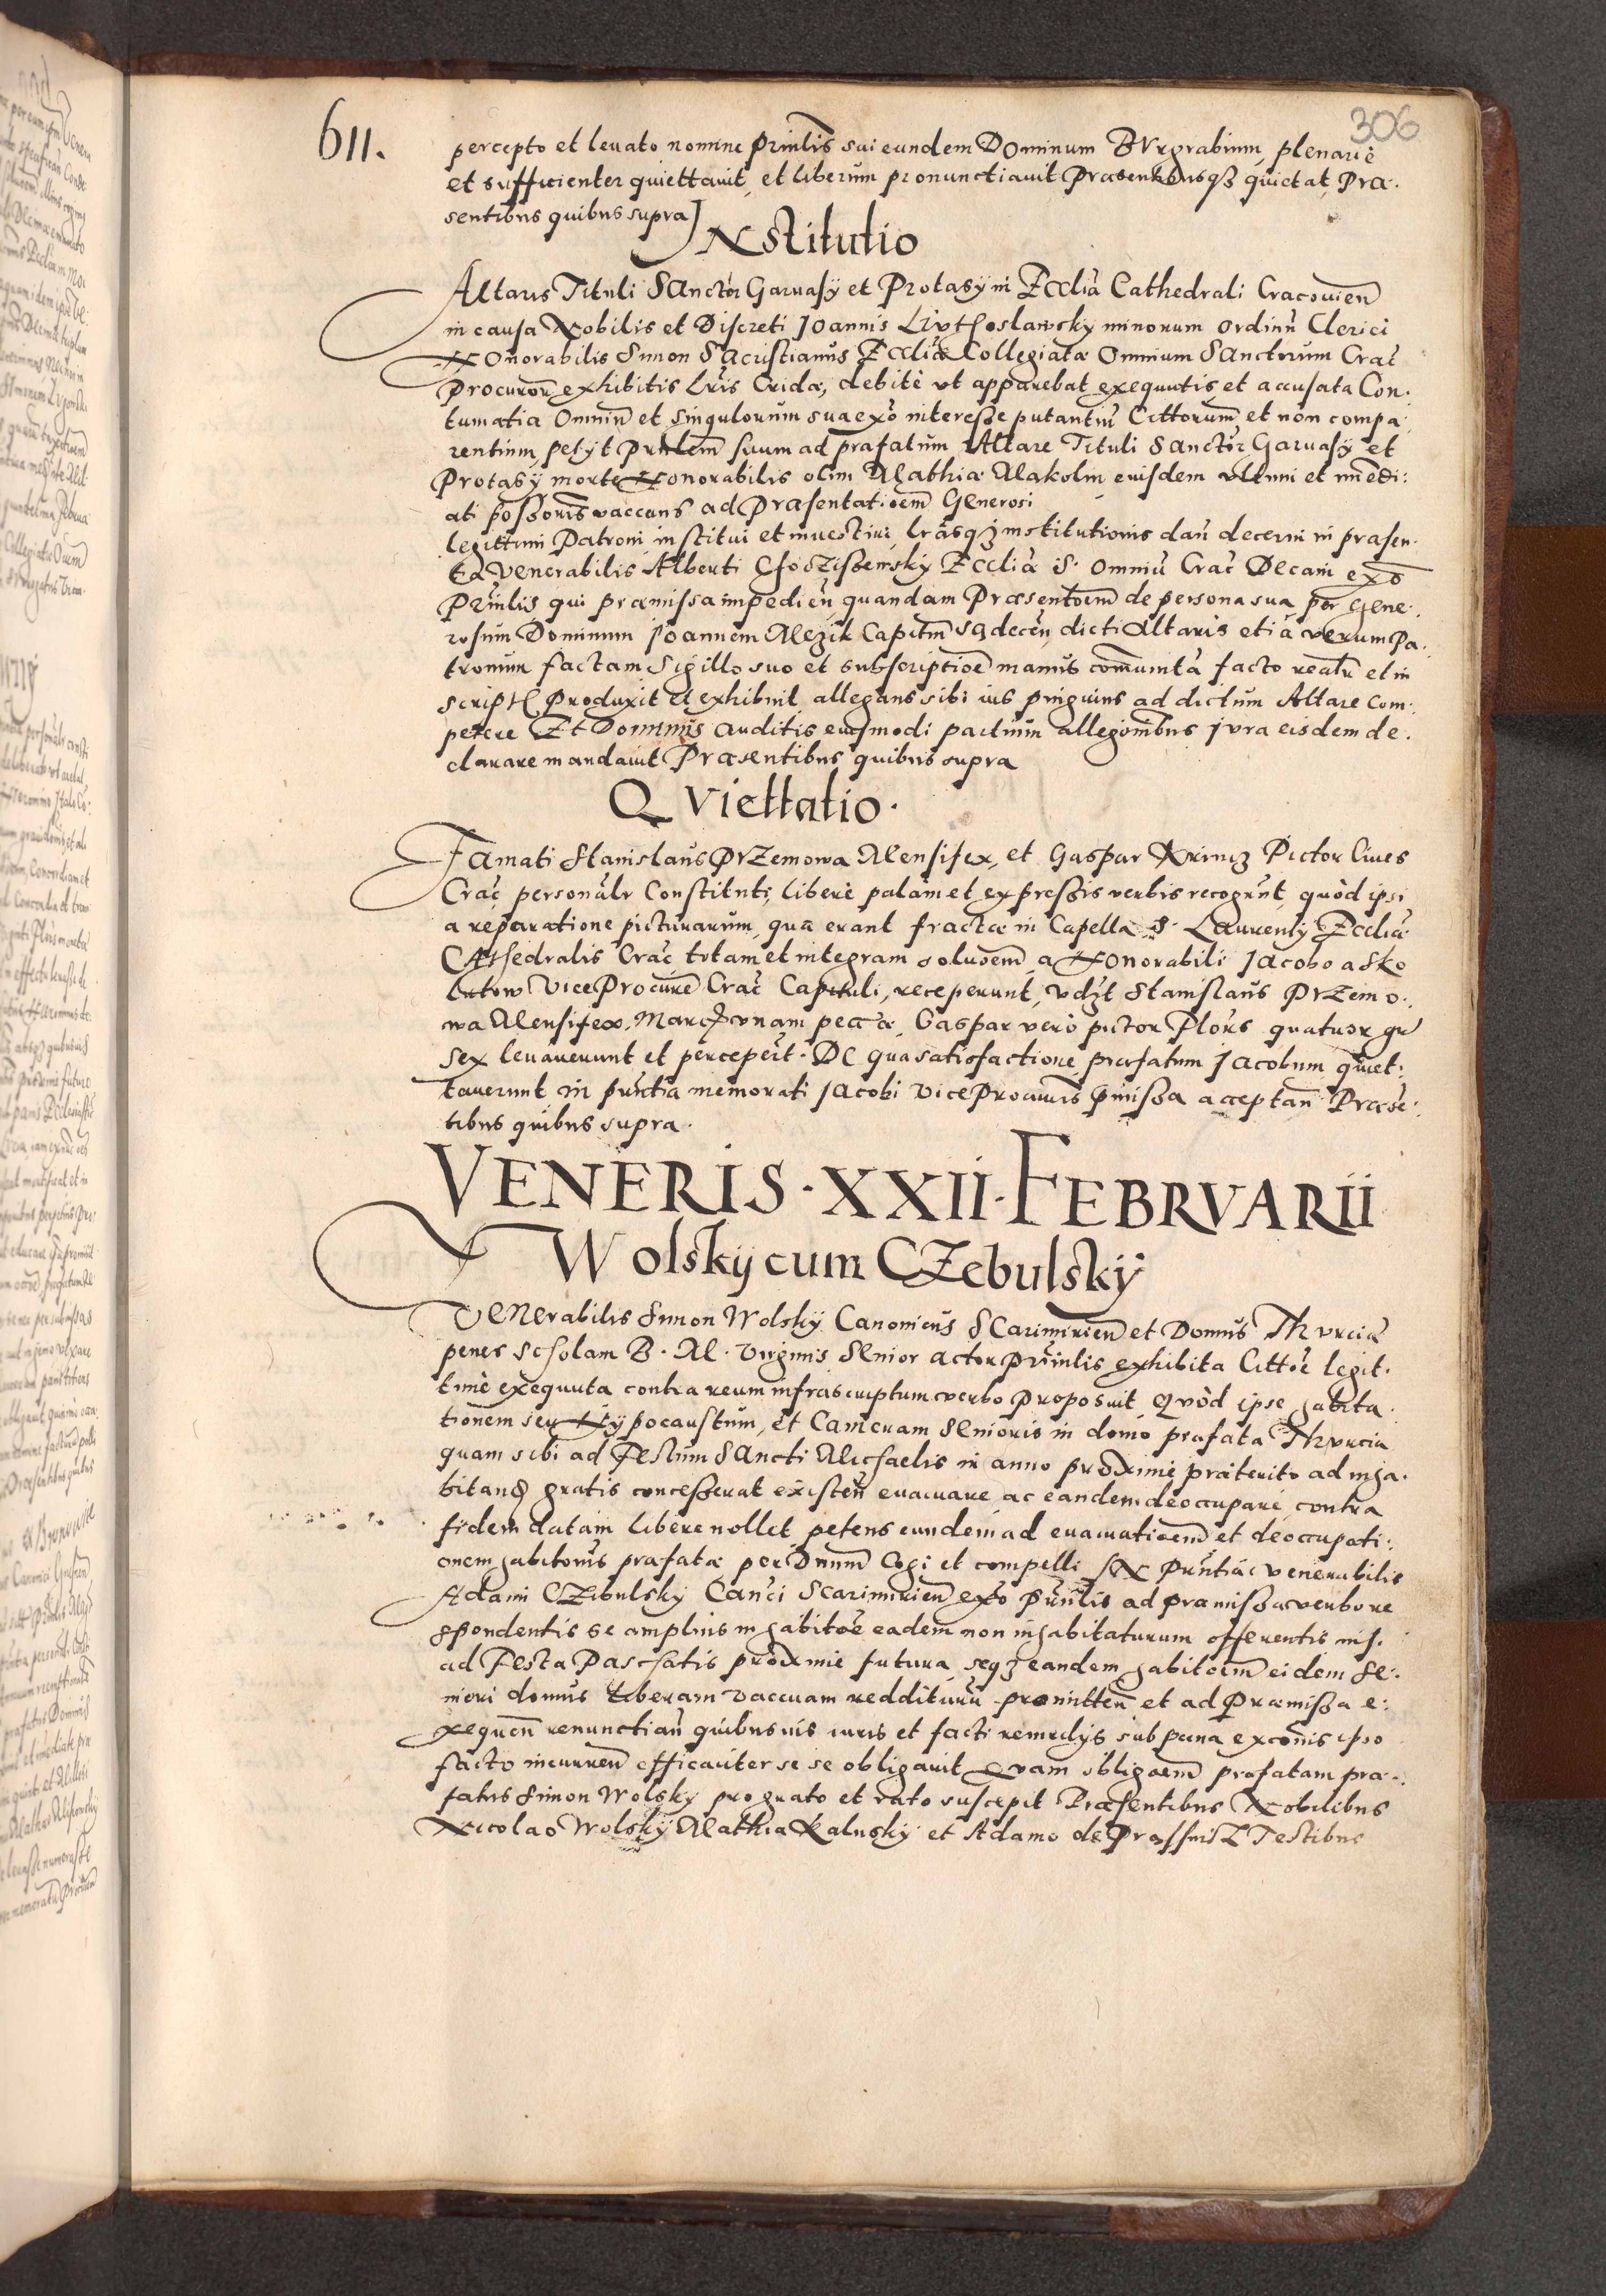 306
611.
percepto et leuato nomine Prinlis sui eundem DOminum BVrgrabium plenariè
et sufficienter quiettauit, et liberum pronunctiauit Praesentibusqз quietat, Prae.
sentibus quibus supra
INstitutio
Altaris Tituli SAnctor Garuasÿ et Protasÿ in Ecclia Cathedrali Cracouien
in causa Nobilis et Discreti JOannis minorum ordinu Clerici
HOnorabilis Simon SAcristianus Eccliae Collegiatae Omnium SAnctorum Crac
Procuror exhibitis Lris Cridae, debitè vt apparebat exequutis et accusata Con.
tumatia Omniu et singulorum sua exo interesse putantiu Cittorum et non compa
rentium, petÿt Prinlem suum ad praefatum Altare Tituli SAnctor Garuasÿ et
Protasÿ morte HOnorabilis olim Mathiae Makolin eiusdem vltimi et immedi:
ati possoris vaccans ad Praesentatioem GEnerosi
legittimi Patroni institui et inuestiri, lrasqз institutionis dan decerni in praesen.
tia VEnerabilis Alberti Ecclia S. Omniu Crac Decani exo
Prinlis qui praemissa impedien quandam Praesentoem de persona sua per GEne.
rosum Dominum JOannem Mezik Capitm Sadecen, dicti Altaris etia verum Pa.
tronum factam sigillo suo et subscriptioe manus comunita facto realr et in
script Produxit et exhibuit allegans sibi ius pinguius ad dictum Altare com.
petere Et DOminus auditis eiusmodi partium allegonibus jura eisdem de.
clarare mandauit Praesentibus quibus supra
QViettatio.
FAmati Stanislaus PrZemowa Mensifex, et Gaspar Pictor Ciues
Crac personalr Constituti, liberè palam et expressis verbis recogrnt, quòd ipsi
a reparatione picturarum, quae erant fractae in Capella S. LAurentÿ Eccliae
CAthedralis Crac totam et integram soluoem, a HOnorabili JAcobo a Sko
tow VIceProcure Crac Capituli, receperunt, vdzt Stanislaus PrZemo.
wa Mensifex, Marcz vnam pecae, Gaspar verò pictor Flors quatuor gr
sex leuauerunt et percepert. DE qua satisfactione praefatum JAcobum quiet:
tauerunt in pruntia memorati JAcobi VIceProcuris pmissa acceptan Praese:
tibus quibus supra.
VENERIS·XXII·FEBRVARII
Wolskÿ cum CZebulskÿ
VENerabilis Simon Wolskÿ Canonicus SCarimirien et Domus THurciae
penes scholam B. M. Virginis SEnior actor Prinlis exhibita Cittoe legit.
timè exequuta contra reum infrascriptum verbo Proposuit QVòd ipse habita.
tionem seu HYpocaustum, et Cameram SEnioris in domo praefata THurcia
quam sibi ad FEstum SAncti Michaelis in anno proxime praeterito ad inha.
bitand gratis concesserat existen euacuare ac eandem deoccupare, contra
fidem datam liberè nollet petens eundem ad euacuatioem et deoccupati:
onem habitonis praefatae per Dnum Cogi et compelli IN Pruntiac venerabilis
Adami CZebulskÿ Canci Scarimirien exo Prinlis ad praemissa verbo re
spondentis se amplius in habitoe eadem non inhabitaturum offerentis nisi.
ad FEsta Paschatis proxime futura, seqз eandem habitoem eidem SE.
niori domus liberam vaccuam redditurū promitten et ad Praemissa e:
xequen renunctian quibusuis iuris et facti remedÿs sub paena exconis ipso
facto incurren efficaciter se se obligauit QVam obligoem praefatam prae.
fatus Simon Wolskÿ pro grato et rato suscepit Praesentibus NObilibus
NIcolao Wolskÿ Mathia Kaluskÿ et Adamo de TEstibus